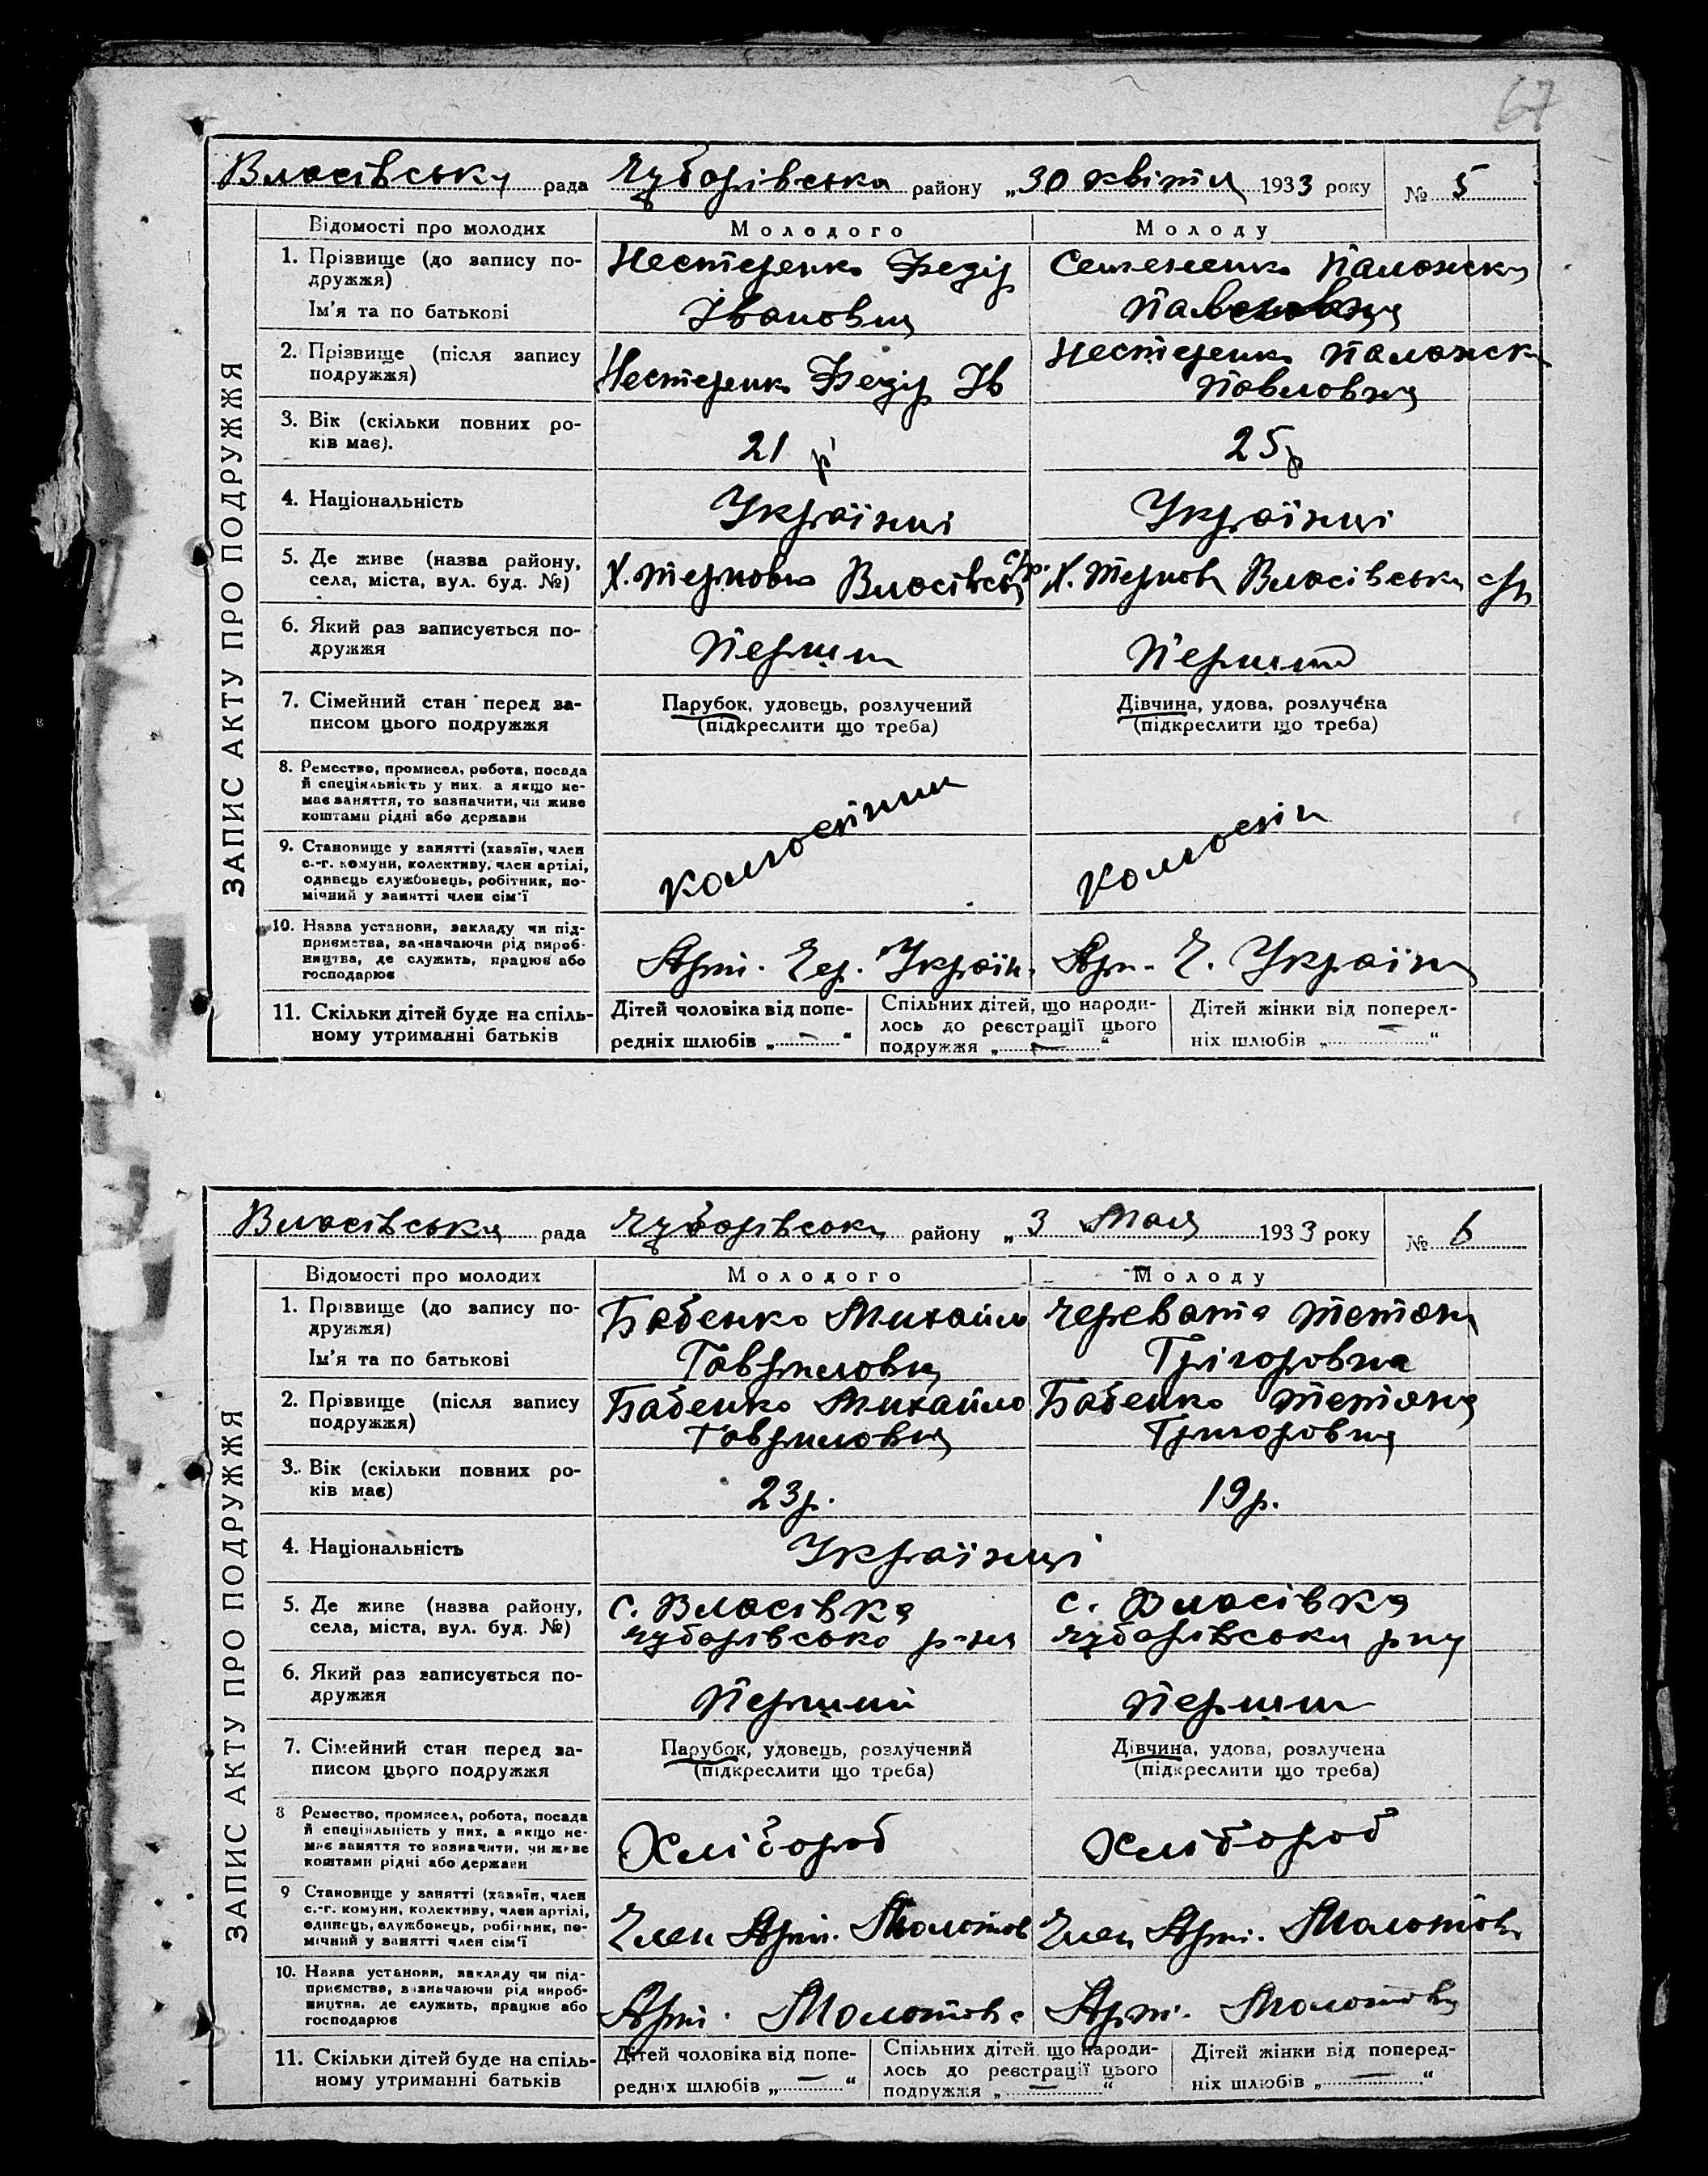 67
Власівська рада Чубарівська району „30 квітня 1933 року № 5
Відомості про молодих Молодого Молоду
ЗАПИС АКТУ ПРО ПОДРУЖЖЯ
1. Прізвище (до запису по-
дружжя)
Ім'я та по батькові
Нестеренко Федір
Іванович
Семененко Палажка
Павловна
2. Прізвище (після запису
подружжя)
Нестеренко Федір Ів
Нестеренко Палажка
Павловна
3. Вік (скільки повних ро-
ків має).
21 р
25 р
4. Національність
Українці
Українці
5. Де живе (назва району,
села, міста, вул. буд. №)
Х. Тернова Власівськ с/р.
Х. Тернова Власівська с/р
6. Який раз записується по-
дружжя
Перший
Перший
7. Сімейний стан перед за-
писом цього подружжя
Парубок, удовець, розлучений
(підкреслити що треба)
Дівчина, удова, розлучена
(підкреслити що треба)
8. Ремество, промисел, робота, посада
й спеціяльність у них, а якщо не-
має заняття, то зазначити, чи живе
коштами рідні або держави
9. Становище у занятті (хазяїн, член
с.-г. комуни, колективу, член артілі,
одинець службовець, робітник, по-
мічний у занятті член сім'ї
10. Назва установи, закладу чи під-
приємства, зазначаючи рід вироб-
ництва, де служить, працює або
господарює
Арті. Чер. Україн.
Арт. Ч. Україна
11. Скільки дітей буде на спіль-
ному утриманні батьків
Дітей чоловіка від попе-
редніх шлюбів „ — “
Спільних дітей, що народи-
лось до реєстрації цього
подружжя „ — “
Дітей жінки від поперед-
ніх шлюбів „ — “
Власівська рада Чубарівська району „3 Мая 1933 року № 6
Відомості про молодих Молодого Молоду
ЗАПИС АКТУ ПРО ПОДРУЖЖЯ
1. Прізвище (до запису по-
дружжя)
Ім'я та по батькові
Бабенко Михайло
Гаврилович
Черевата Тетяна
Грігоровна
2. Прізвище (після запису
подружжя)
Бабенко Михайло
Гаврилович
Бабенко Тетяна
Григоровна
3. Вік (скільки повних ро-
ків має)
23 р.
19 р.
4. Національність
Українці
5. Де живе (назва району,
села, міста, вул. буд. №)
с. Власівка
Чубарівсько р-на
с. Власівка
Чубарівська рну
6. Який раз записується по-
дружжя
Перший
Перший
7. Сімейний стан перед за-
писом цього подружжя
Парубок, удовець, розлучений
(підкреслити що треба)
Дівчина, удова, розлучена
(підкреслити що треба)
8 Ремество, промисел, робота, посада
й спеціяльність у них, а якщо не-
має заняття то зазначити, чи живе
коштами рідні або держави
Хлібороб
Хлібороб
9 Становище у занятті (хазяїн, член
с.-г. комуни, колективу, член артілі,
одинець, службовець, робітник, по-
мічний у занятті член сім'ї
Член Арті. Молотов
Член Арті. Молотова
10. Назва установи, закладу чи під-
приємства, зазначаючи рід вироб-
ництва, де служить, працює або
господарює
Арті. Молотова
Арті. Молотова
11. Скільки дітей буде на спіль-
ному утриманні батьків
Дітей чоловіка від попе-
редніх шлюбів „ — “
Спільних дітей, що народи-
лось до реєстрації цього
подружжя „ — “
Дітей жінки від поперед-
ніх шлюбів „ — “